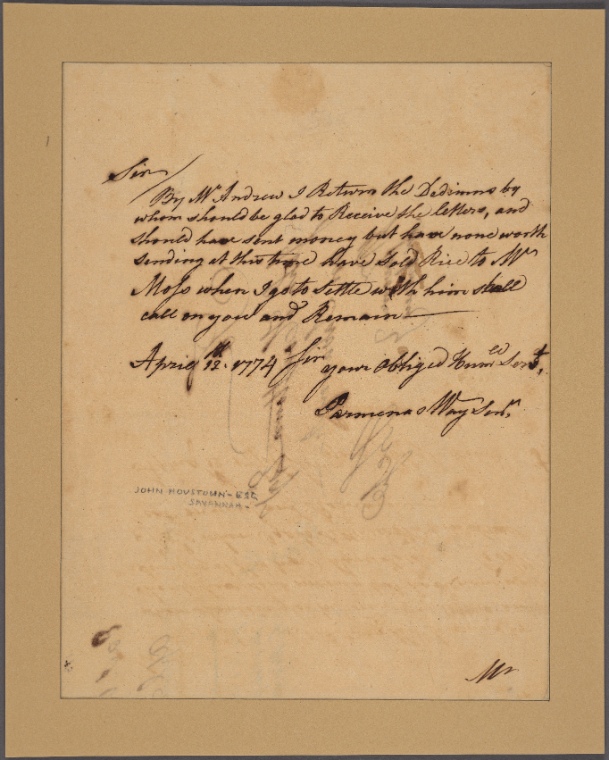 Sir
By Mr Andrew I Return the Dedimus by
whom should be glad to Receive the letters, and
should have sent money but have none worth
sending at this time have sold Rice to Mr
Moss when I go to settle with him shall
call on you and Remain
April 12th. 1774 Sir your obliged Humle Servt,
Parmenas Way Senr,
JOHN HOUSTOUN - ESQ
SAVANNAH -
Mr